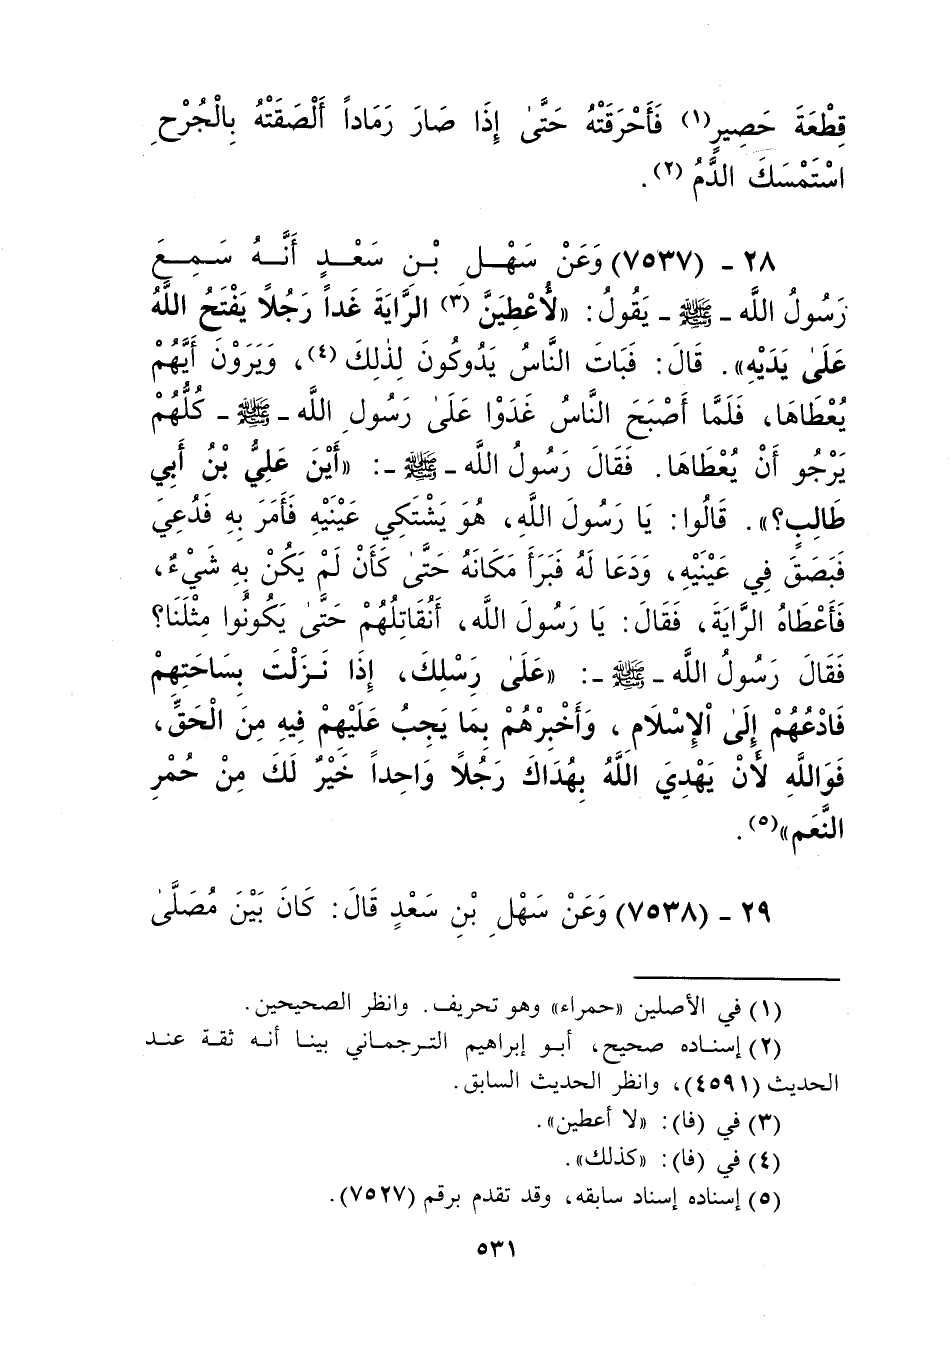 قِطْعَةَ حَصِيرٍ(١) فَأَحْرَقَتْهُ حَتَّىٰ إِذَا صَارَ رَمَاداً أَلْصَقَتْهُ بِالْجُرْحِ
اسْتَمْسَكَ الدَّمُ (٢).
٢٨ ـ (٧٥٣٧) وَعَنْ سَهْلِ بْنِ سَعْدٍ أَنَّهُ سَمِعَ
رَسُولُ اللَّه ـ ﷺ ـ يَقُولُ: «لُأعْطِيَنَّ (٣) الرَّايَةَ غَداً رَجُلاً يَفْتَحُ اللَّهُ
عَلَىٰ يَدَيْهِ». قَالَ: فَبَاتَ النَّاسُ يَدُوكُونَ لِذٰلِكَ (٤)، وَيَرَوْنَ أَيَّهُمْ
يُعْطَاهَا، فَلَمَّا أَصْبَحَ النَّاسُ غَدَوْا عَلَىٰ رَسُولِ اللَّه ـ ﷺ ـ كُلُّهُمْ
يَرْجُو أَنْ يُعْطَاهَا. فَقَالَ رَسُولُ اللَّه ـ ﷺ ـ: «أَيْنَ عَلِيُّ بْنُ أَبي
طَالِبٍ؟». قَالُوا: يَا رَسُولَ اللَّهِ، هُوَ يَشْتَكِي عَيْنَيْهِ فَأَمَرَ بِهِ فَدُعِيَ
فَبَصَقَ فِي عَيْنَيْهِ، وَدَعَا لَهُ فَبَرَأَ مَكَانَهُ حَتَّىٰ كَأَنْ لَمْ يَكُنْ بِهِ شَيْءٌ،
فَأَعْطَاهُ الرَّايَةَ، فَقَالَ: يَا رَسُولَ اللَّه، أَنُقَاتِلُهُمْ حَتَّىٰ يَكُونُوا مِثْلَنَا؟
فَقَالَ رَسُولُ اللَّه ـ ﷺ ـ: «عَلَىٰ رَسْلِكَ، إِذَا نَزَلْتَ بِسَاحَتِهِمْ
فَادْعُهُمْ إِلَىٰ اْلإِسْلَامِ، وَأَخْبِرْهُمْ بِمَا يَجِبُ عَلَيْهِمْ فِيهِ مِنَ الْحَقِّ،
فَوَاللَّهِ لَأَنْ يَهْدِيَ اللَّهُ بِهُدَاكَ رَجُلاً وَاحِداً خَيْرٌ لَكَ مِنْ حُمْرِ
النَّعَمِ»(٥).
٢٩ ـ (٧٥٣٨) وَعَنْ سَهْلِ بْنِ سَعْدٍ قَالَ: كَانَ بَيْنَ مُصَلَّىٰ
(١) في الأصلين «حمراء» وهو تحريف. وانظر الصحيحين.
(٢) إسناده صحيح، أبو إبراهيم الترجماني بينا أنه ثقة عند
الحديث (٤٥٩١)، وانظر الحديث السابق.
(٣) في (فا): «لا أعطين».
(٤) في (فا): «كذلك».
(٥) إسناده إسناد سابقه، وقد تقدم برقم (٧٥٢٧).
٥٣١